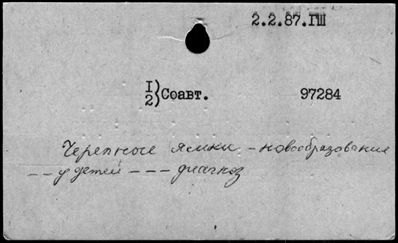 2.2.87.ГШ
1) Соавт. 97284
2)
Черепные ямки - новообразования
-- у детей --- диагноз